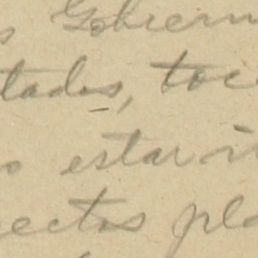 s Gobiern
tados, toc
o estar i
ectos pla